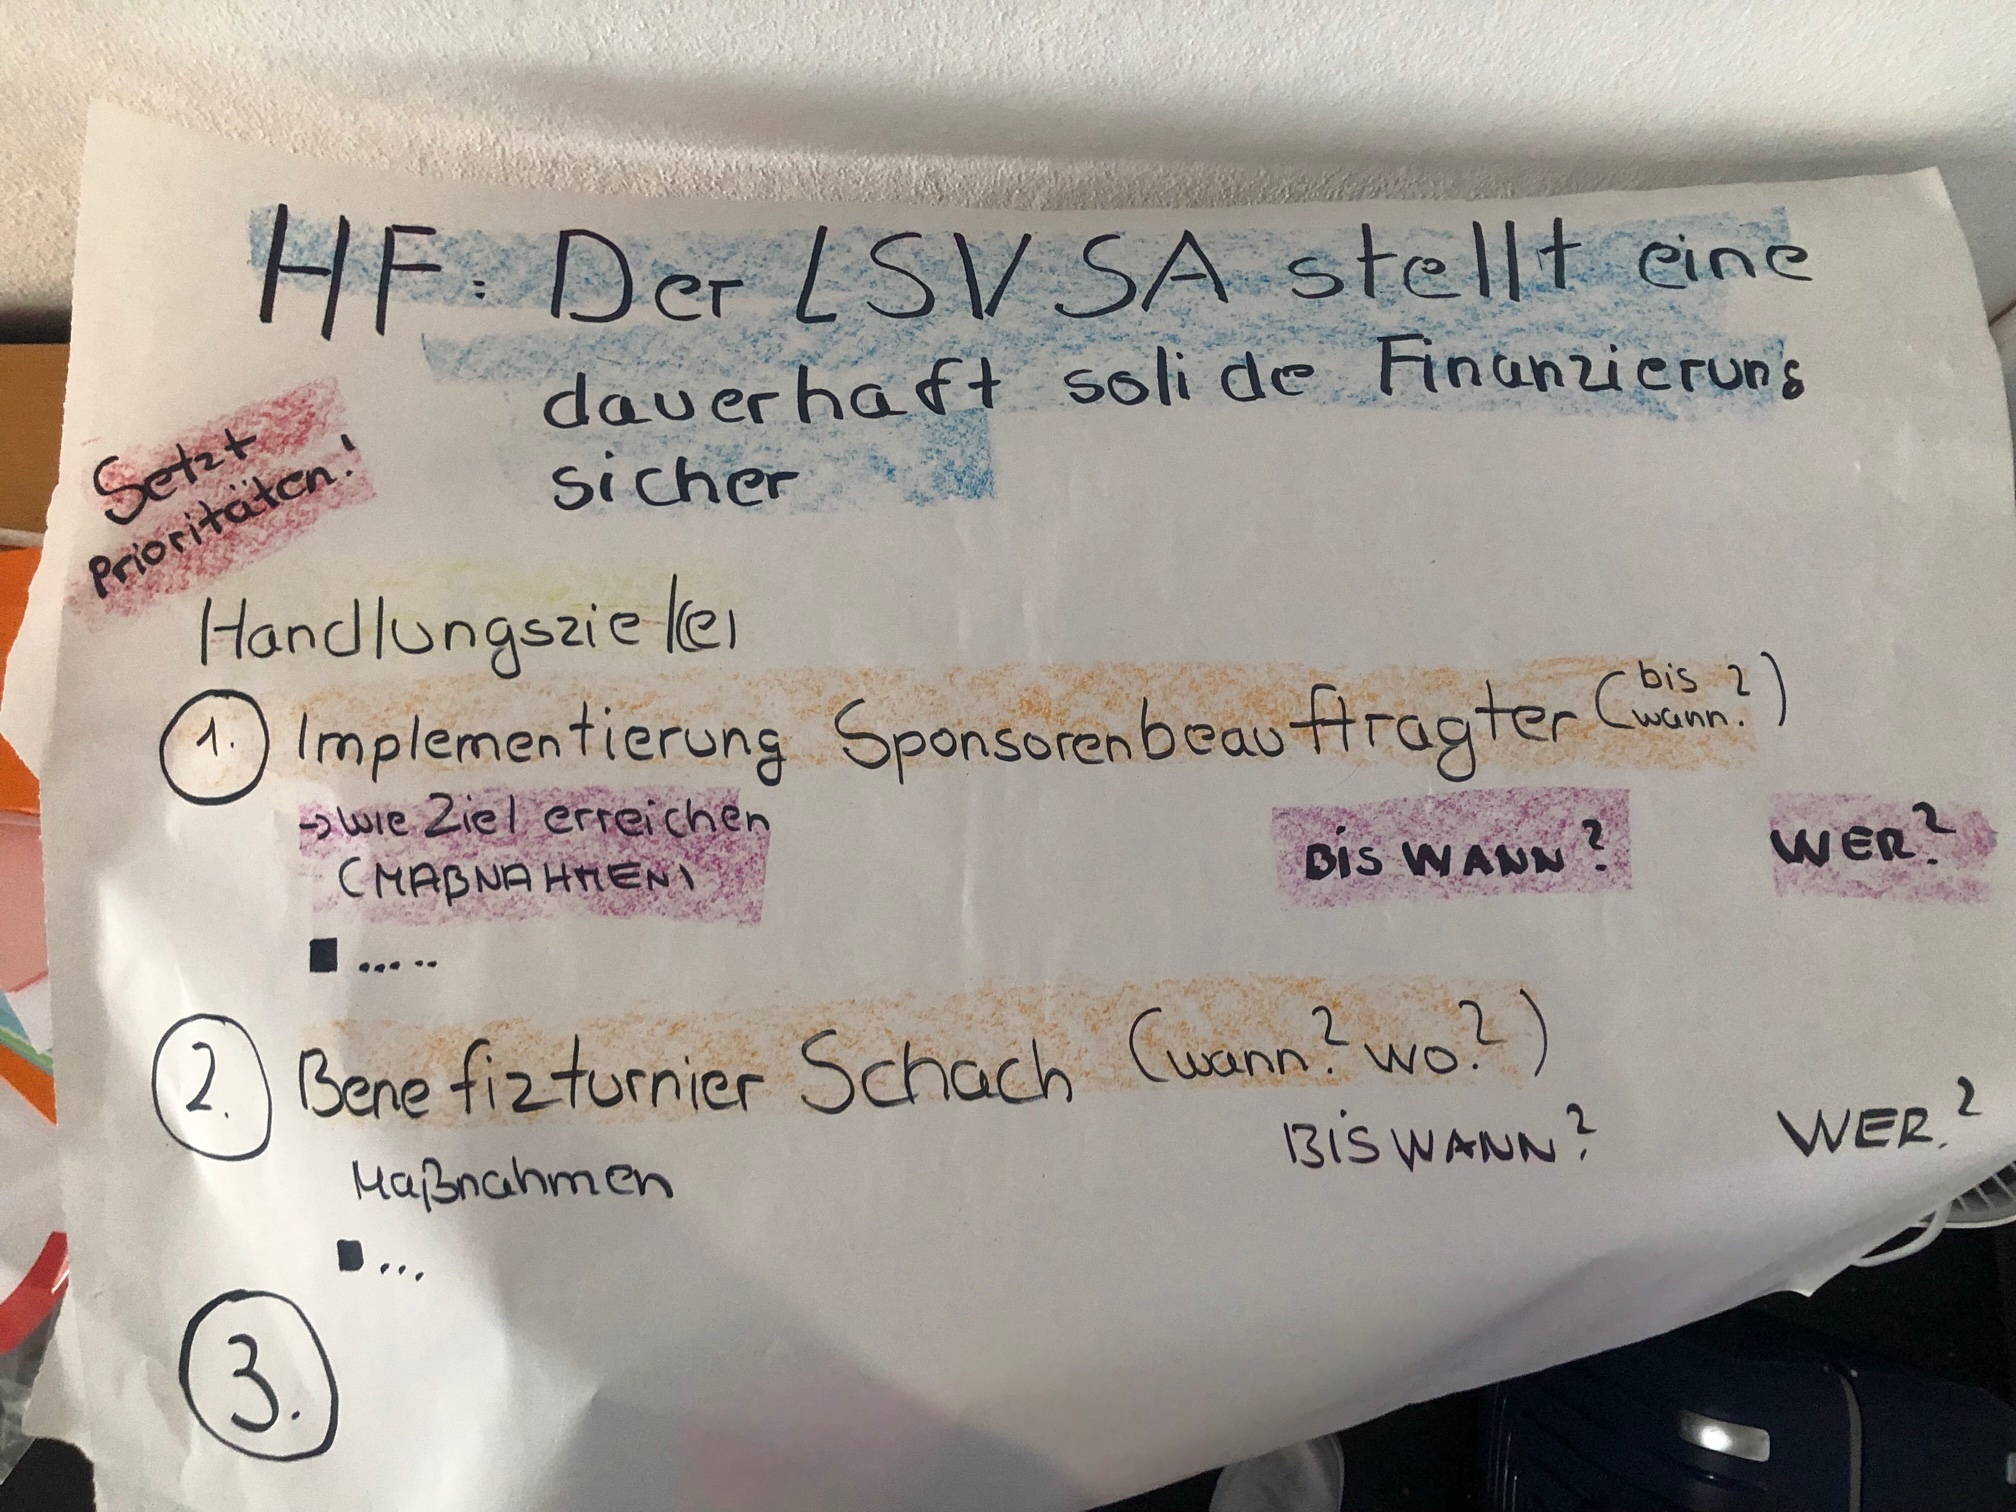 HF: Der LSVSA stellt eine
dauerhaft solide Finanzierung
sicher
Setzt
Prioritäten!
Handlungsziel(e)
1. Implementierung Sponsorenbeauftragter (bis wann?)
→ wie Ziel erreichen
(MAßNAHMEN)
BIS WANN?
WER?
■ .....
2. Benefizturnier Schach (wann? wo?)
Maßnahmen
BIS WANN?
WER?
■ ...
3.